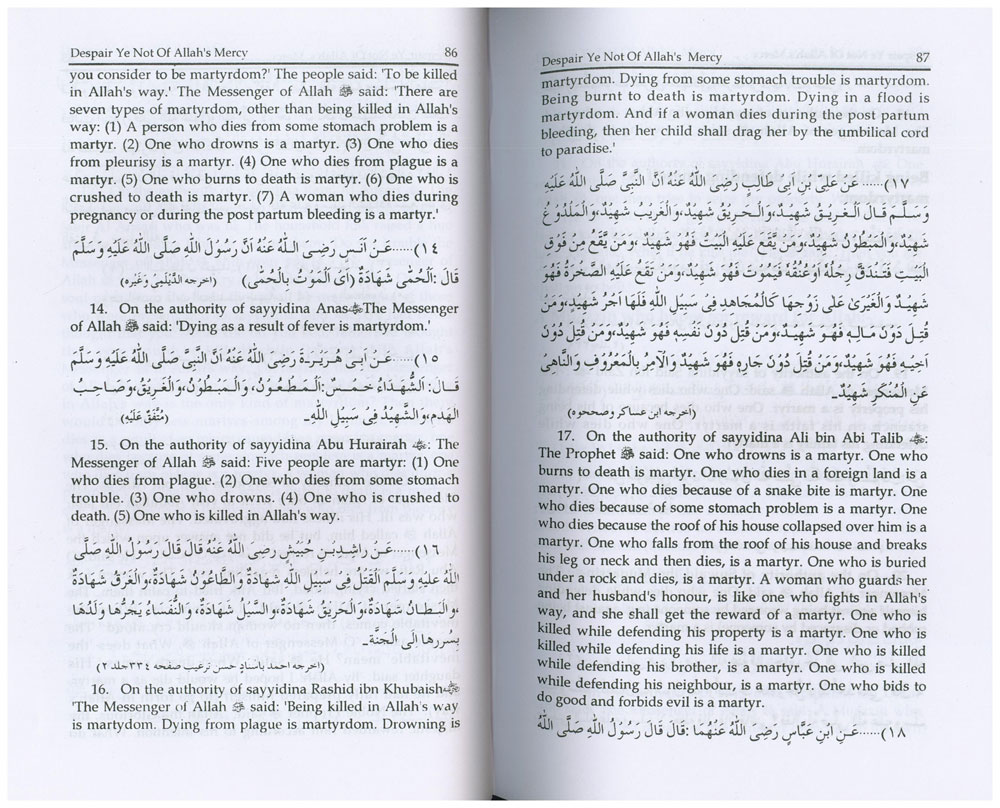 Despair Ye Not Of Allah's Mercy 86
you consider to be martyrdom?' The people said: 'To be killed
in Allah's way.' The Messenger of Allah ﷺ said: 'There are
seven types of martyrdom, other than being killed in Allah's
way: (1) A person who dies from some stomach problem is a
martyr. (2) One who drowns is a martyr. (3) One who dies
from pleurisy is a martyr. (4) One who dies from plague is a
martyr. (5) One who burns to death is martyr. (6) One who is
crushed to death is martyr. (7) A woman who dies during
pregnancy or during the post partum bleeding is a martyr.'
١٤)......عَنْ اَنَسٍ رَضِىَ اللهُ عَنْهُ اَنَّ رَسُوْلَ اللهِ صَلَّى اللهُ عَلَيْهِ وَسَلَّمَ
قَالَ :اَلْحُمّٰى شَهَادَةٌ (اَىْ اَلْمَوْتُ بِالْحُمّٰى) (اخرجه الدَّيْلَمِىْ وَغَيْره)
14. On the authority of sayyidina Anas The Messenger
of Allah ﷺ said: 'Dying as a result of fever is martyrdom.'
١٥)......عَنْ اَبِىْ هُرَيْرَةَ رَضِىَ اللهُ عَنْهُ اَنَّ النَّبِىَّ صَلَّى اللهُ عَلَيْهِ وَسَلَّمَ
قَالَ: اَلشُّهَدَاءُ خَمْسٌ:اَلْمَطْعُوْنُ، وَالْمَبْطُوْنُ،وَالْغَرِيْقُ،وَصَاحِبُ
الْهَدمِ،وَالشَّهِيْدُ فِىْ سَبِيْلِ اللهِ۔ (مُتَّفَقٌ عَلَيْهِ)
15. On the authority of sayyidina Abu Hurairah : The
Messenger of Allah ﷺ said: Five people are martyr: (1) One
who dies from plague. (2) One who dies from some stomach
trouble. (3) One who drowns. (4) One who is crushed to
death. (5) One who is killed in Allah's way.
١٦)......عَنْ رَاشِدِبْنِ حُبَيْشٍ رضى اللهُ عَنْهُ قَالَ قَالَ رَسُوْلُ اللهِ صَلَّى
اللهُ عليه وَسَلَّمَ اَلْقَتْلُ فِىْ سَبِيْلِ اللهِ شَهَادَةٌ وَالطَّاعُوْنُ شَهَادَةٌ،وَالْغَرْقُ شَهَادَةٌ
،وَالْبَطَنُ شَهَادَةٌ،وَالْحَرِيْقُ شَهَادَةٌ،وَالسَّيْلُ شَهَادَةٌ،وَالنُّفَسَاءُ يَجُرُّهَا وَلَدُهَا
بِسُرَرِهَا اِلٰى الْجَنَّةِ۔
(اخرجه احمد باسنادٍ حسن ترغيب صفحه ٣٣٤جلد ٢)
16. On the authority of sayyidina Rashid ibn Khubaish
'The Messenger of Allah ﷺ said: 'Being killed in Allah's way
is martydom. Dying from plague is martyrdom. Drowning is
Despair Ye Not Of Allah's Mercy 87
martyrdom. Dying from some stomach trouble is martyrdom.
Being burnt to death is martyrdom. Dying in a flood is
martyrdom. And if a woman dies during the post partum
bleeding, then her child shall drag her by the umbilical cord
to paradise.'
١٧)......عَنْ عَلِىْ بِنْ اَبِىْ طَالِبٍ رَضِىَ اللهُ عَنْهُ اَنَّ النَّبِىَّ صَلَّى اللهُ عَلَيْهِ
وَسَلَّمَ قَالَ اَلْغَرِيْقُ شَهِيْدٌ،وَالْحَرِيْقُ شَهِيْدٌ،وَالْغَرِيْبُ شَهِيْدٌ،وَالْمَلْدُوْغُ
شَهِيْدٌ،وَالْمَبْطُوْنُ شَهِيْدٌ،وَمَنْ يَّقَعُ عَلَيْهِ الْبَيْتُ فَهُوَ شَهِيْدٌ ،وَمَنْ يَّقَعُ مِنْ فَوْقِ
الْبَيْتِ فَتَنْدَقُّ رِجْلُهُ اَوْعُنُقُهُ فَيَمُوْتُ فَهُوَ شَهِيْدٌ،وَمَنْ تَقَعُ عَلَيْهِ الصَّخْرَةُ فَهُوَ
شَهِيْدٌ وَالْغَيْرٰى عَلٰى زَوْجِهَا كَالْمُجَاهِدِ فِىْ سَبِيْلِ اللهِ فَلَهَا اَجْرُ شَهِيْدٍ،وَمَنْ
قُتِلَ دُوْنَ مَالِهٖ فَهُوَ شَهِيْدٌ،وَمَنْ قُتِلَ دُوْنَ نَفْسِهٖ فَهُوَ شَهِيْدٌ،وَمَنْ قُتِلَ دُوْنَ
اَخِيْهِ فَهُوَ شَهِيْدٌ،وَمَنْ قُتِلَ دُوْنَ جَارِهٖ فَهُوَ شَهِيْدٌ وَالْآمِرُ بِالْمَعْرُوْفِ وَالنَّاهِىْ
عَنِ الْمُنْكَرِ شَهِيْدٌ۔
(اَخرجه ابن عساكر وصححوه)
17. On the authority of sayyidina Ali bin Abi Talib :
The Prophet ﷺ said: One who drowns is a martyr. One who
burns to death is martyr. One who dies in a foreign land is a
martyr. One who dies because of a snake bite is martyr. One
who dies because of some stomach problem is a martyr. One
who dies because the roof of his house collapsed over him is a
martyr. One who falls from the roof of his house and breaks
his leg or neck and then dies, is a martyr. One who is buried
under a rock and dies, is a martyr. A woman who guards her
and her husband's honour, is like one who fights in Allah's
way, and she shall get the reward of a martyr. One who is
killed while defending his property is a martyr. One who is
killed while defending his life is a martyr. One who is killed
while defending his brother, is a martyr. One who is killed
while defending his neighbour, is a martyr. One who bids to
do good and forbids evil is a martyr.
١٨)......عَنِ ابْنِ عَبَّاسٍ رَضِىَ اللهُ عَنْهُمَا :قَالَ قَالَ رَسُوْلُ اللهِ صَلَّى اللهُ